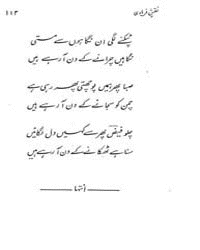 نقش فریادی
۱۱۳
ٹپکنے لگی اِن نگاہوں سے مستی
نگاہیں چرانے کے دن آ رہے ہیں
صبا پھر ہمیں پوچھتی پھر رہی ہے
چمن کو سجانے کے دن آ رہے ہیں
چلو فیض پھر سے کہیں دل لگائیں
سنا ہے ٹھکانے کے دن آ رہے ہیں